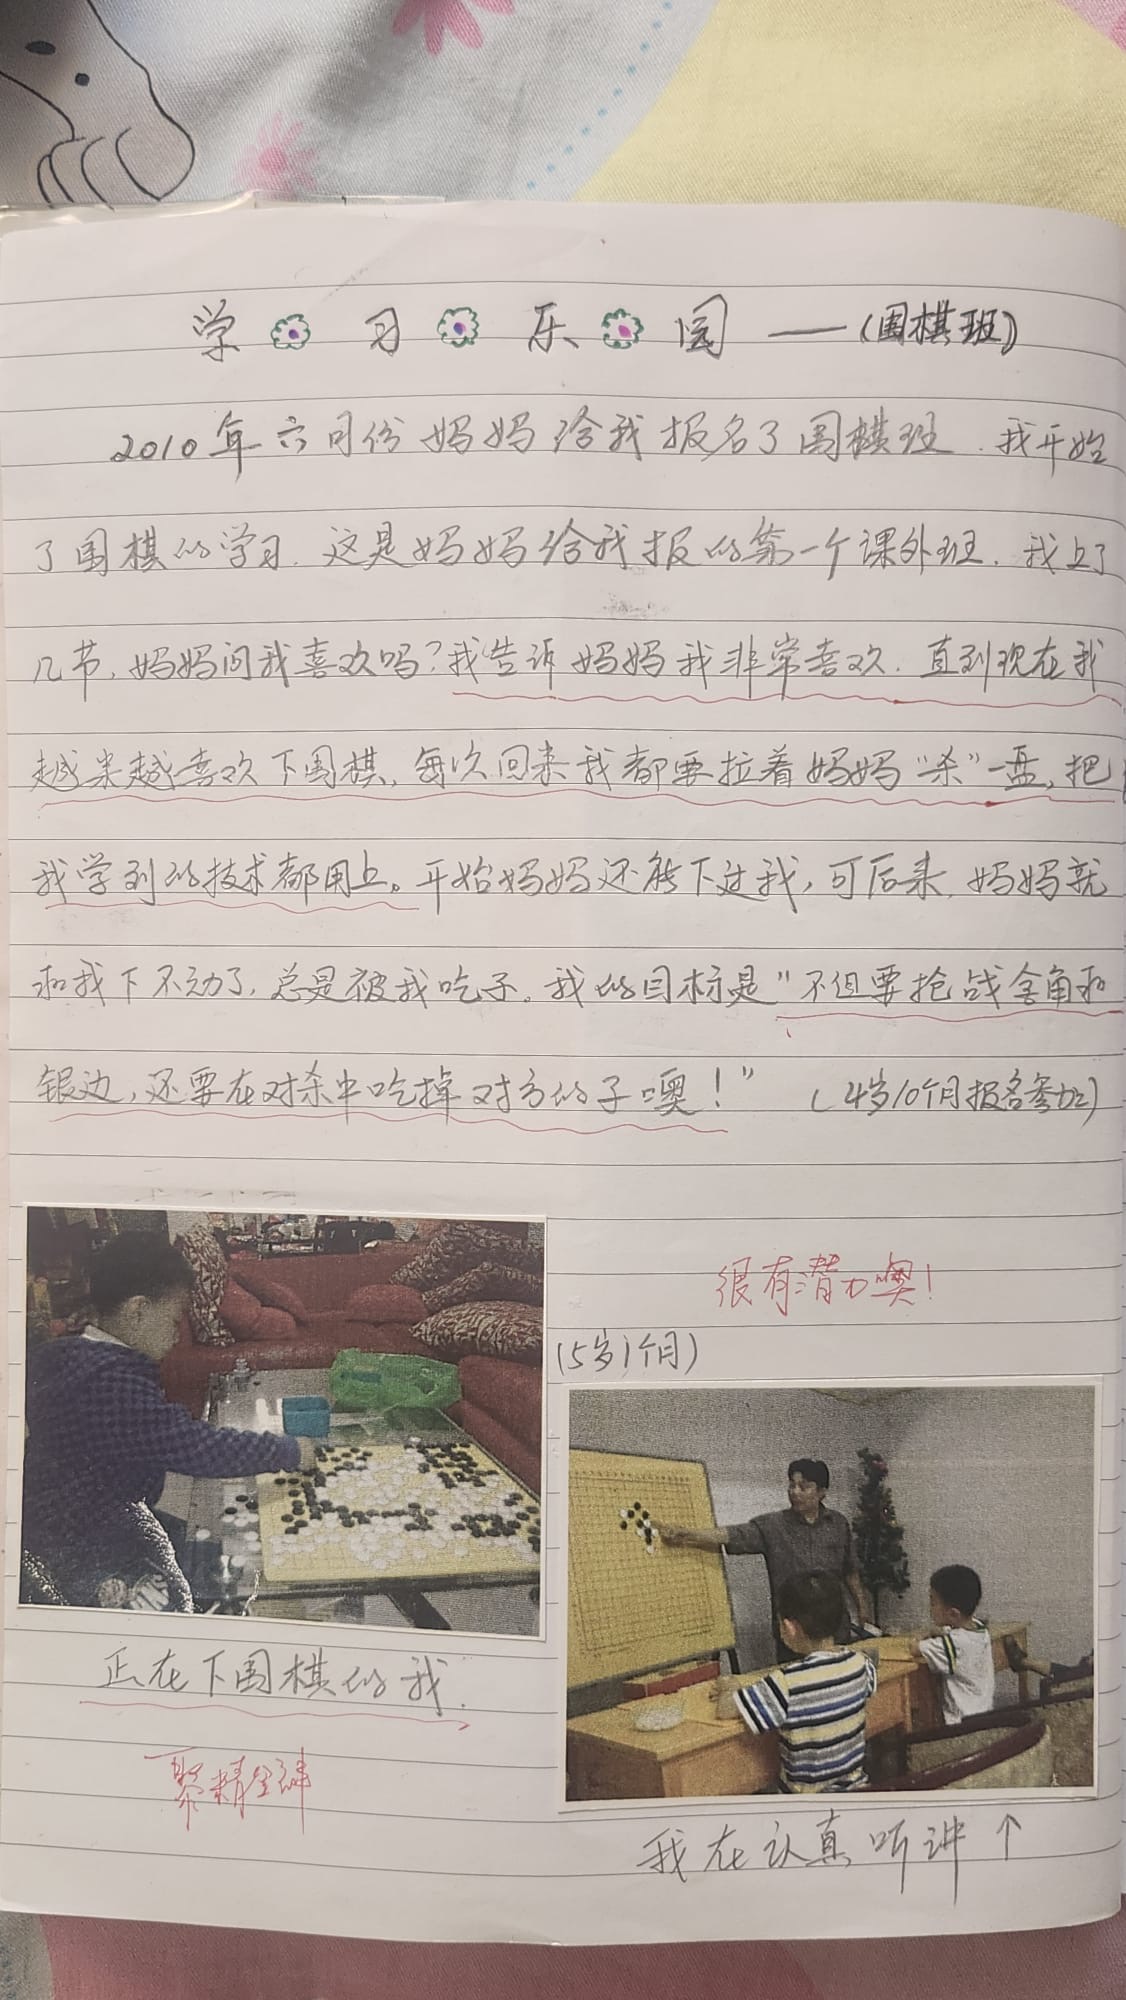 学习乐园——(围棋班)
2010年六月份妈妈给我报名了围棋班.我开始
了围棋的学习.这是妈妈给我报的第一个课外班.我上了
几节,妈妈问我喜欢吗?我告诉妈妈我非常喜欢.直到现在我
越来越喜欢下围棋,每次回来我都要拉着妈妈“杀”一盘,把
我学到的技术都用上。开始妈妈还能下过我,可后来,妈妈就
和我下不动了,总是被我吃子。我的目标是“不但要抢战金角和
银边,还要在对杀中吃掉对方的子噢!” (4岁10个月报名参加)
很有潜力噢!
(5岁1个月)
正在下围棋的我.
聚精会神
我在认真听讲↑